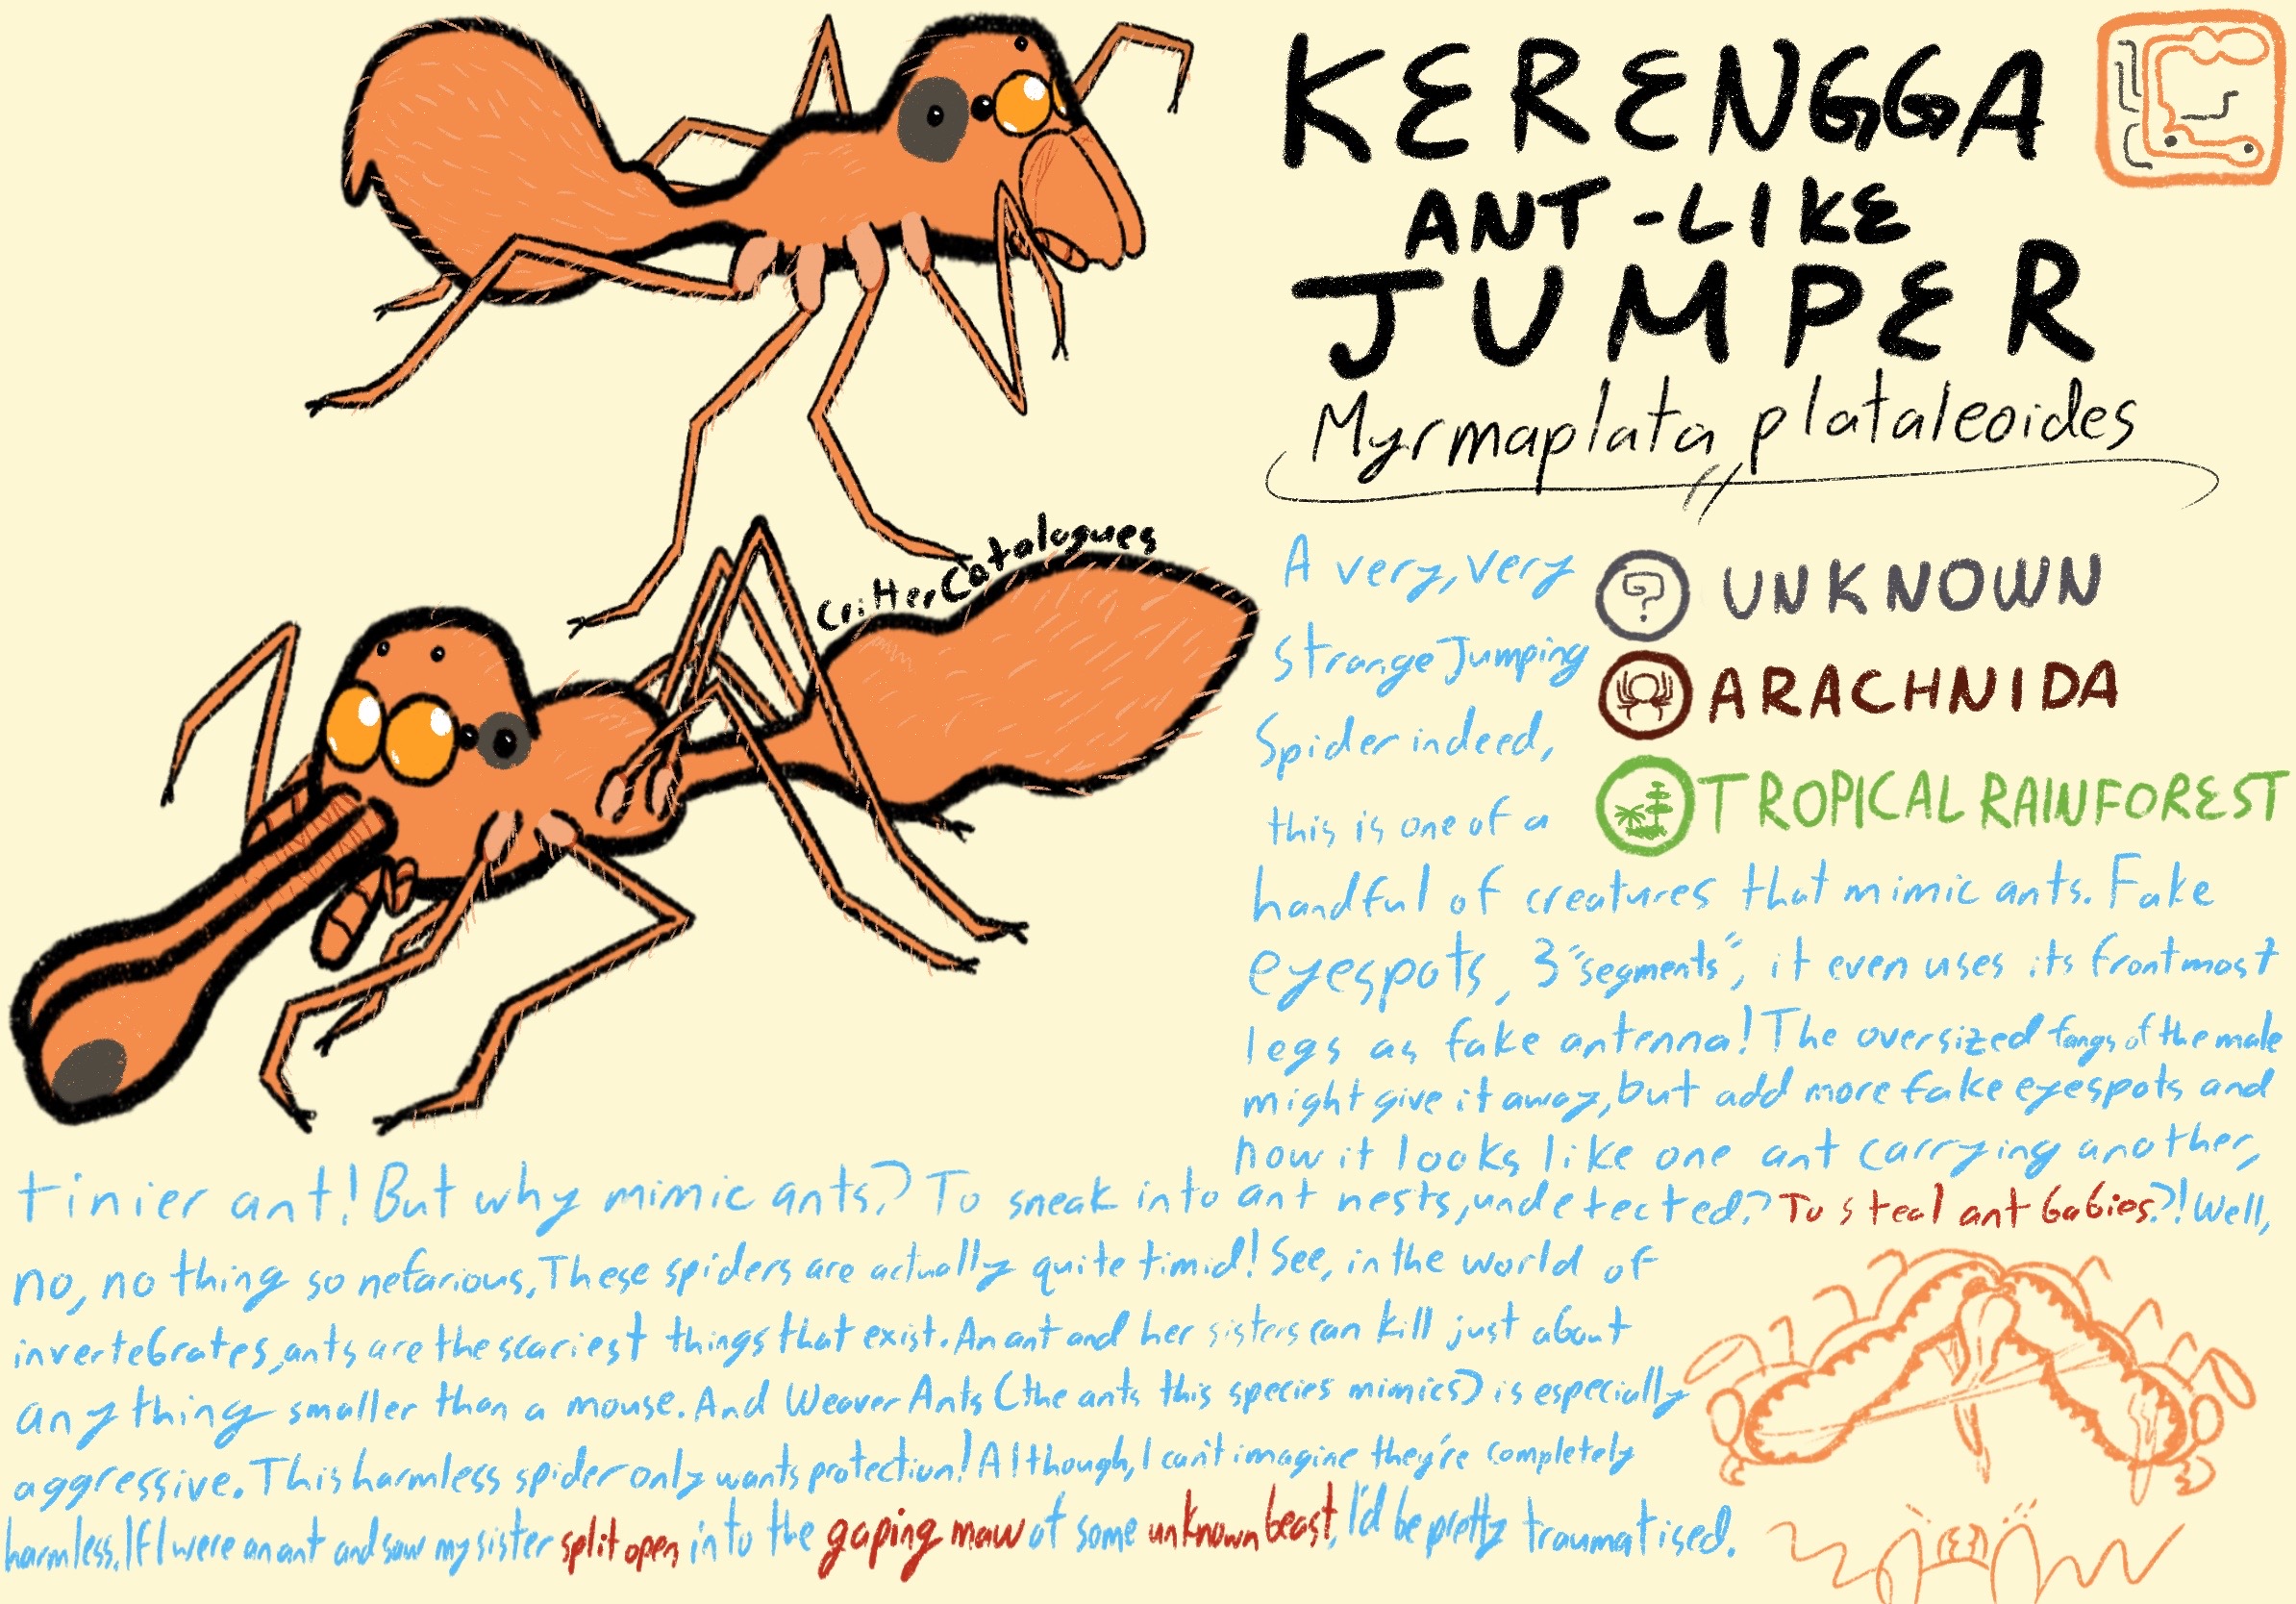 KERENGGA
ANT-LIKE
JUMPER
Myrmaplata plataleoides
CritterCatalogues
UNKNOWN
ARACHNIDA
TROPICAL RAINFOREST
A very, very
strange Jumping
Spider indeed,
this is one of a
handful of creatures that mimic ants. Fake
eyespots, 3 "segments", it even uses its frontmost
legs as fake antenna! The oversized fangs of the male
might give it away, but add more fake eyespots and
now it looks like one ant carrying another,
tinier ant! But why mimic ants? To sneak into ant nests, undetected? To steal ant babies?! Well,
no, nothing so nefarious, These spiders are actually quite timid! See, in the world of
invertebrates, ants are the scariest things that exist. An ant and her sisters can kill just about
anything smaller than a mouse. And Weaver Ants (the ants this species mimics) is especially
aggressive. This harmless spider only wants protection! Although, I can't imagine they're completely
harmless. If I were an ant and saw my sister split open into the gaping maw of some unknown beast, I'd be pretty traumatised.